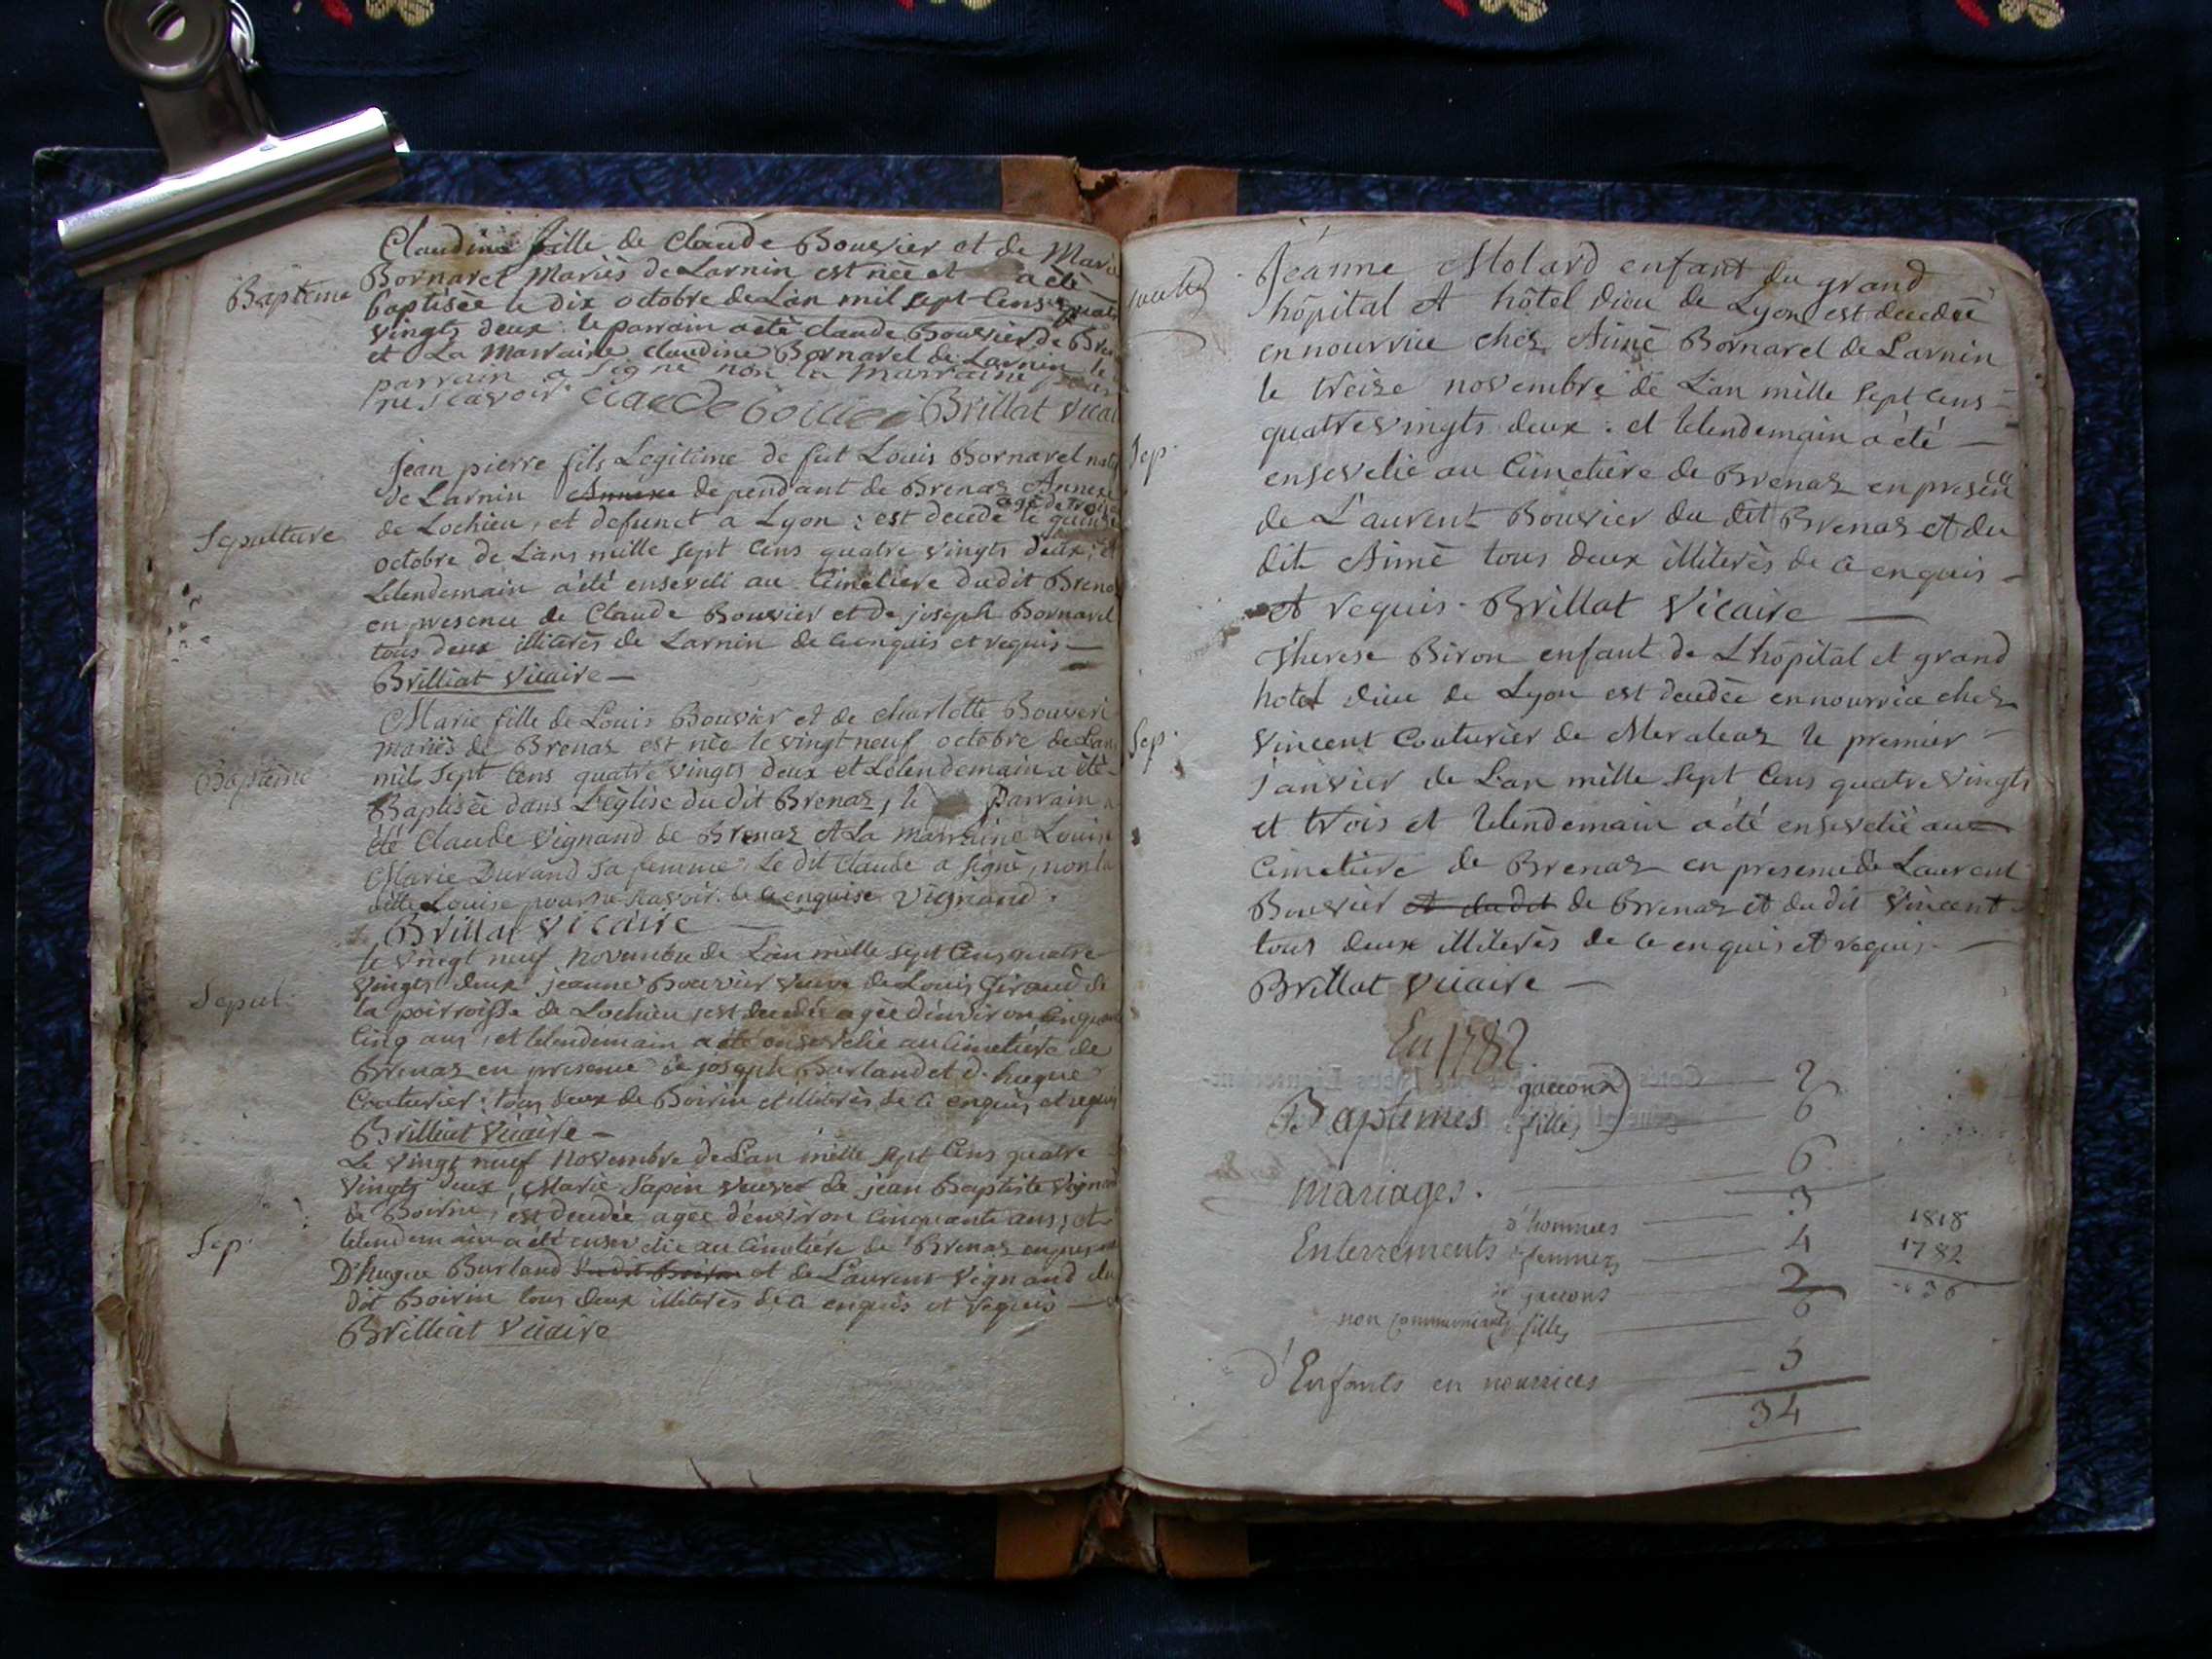 Claudine fille de Claude Bouvier et de Marie
Baptême
Bornarel Mariès de Larnin est née et a étè
baptisée le dix octobre de Lan mil sept Cens quatre
vingts deux. le parrain a étè claude Bouvier de
et La Marraine claudine Bornarel de Larnin le
parrain a Signé non la marraine pour
ne scavoir Brillat vicai
jean pierre fils Legitime de fut Louis Bornarel natif
de Larnin Annexe dependant de Brenaz Annexe
agé de trois
de Lochieu, et defunct a Lyon ; est decedé le quinze
Sepulture
octobre de Lans mille sept Cens quatre vingts deux ; et
Lelendemain a été enseveli au Cimetiere dudit Brenaz
en presence de Claude Bouvier et de joseph Bornarel
tous deux illiterès de Larnin de ce enquis et requis —
Brilliat vicaire —
Marie fille de Louis Bouvier et de charlotte Bouvier
mariès de Brenaz est née le vingt neuf octobre de Lan
Baptême
mil sept Cens quatre vingts deux et Lelendemain a étè
Baptisèe dans L'église du dit Brenaz, le parrain a
été Claude vignand de Brenaz et La marraine Louise
Marie Durand sa femme. Le dit Claude a signè, non la
ditte Louise pour ne scavoir de ce enquise vignand.
Brillat vicaire —
le vingt neuf novembre de Lan mille sept Cens quatre
vingts deux jeanne Bouvier veuve de Louis Giraud de
Sepul.
la poirroisse de Lochieu, est decedée agèe d'environ Cinquante
Cinq ans, et lelendemain a été ensevelie au Cimetière de
Brenaz en presence de joseph Burland et d. hugue
Couturier : tous deux de Boirin et illiterès de ce enquis et requis
Brilliat vicaire —
Le vingt neuf Novembre de Lan mille sept Cens quatre
vingts deux, Marie Sapin veuve de jean Baptiste vignand
de Boirin, est decedée agèe d'environ Cinquante ans ; et
Sep.
lelendemain a été ensevelie au Cimetiére de Brenaz en presence
D'hugue Burland du dit Boirin et de Laurent vignand du
dit Boirin tous deux illiterès de ce enquis et requis —
Brilliat vicaire
Jeanne Molard enfant du grand
hôpital et hôtel dieu de Lyon est decedée
en nourrice chez Aimè Bornarel de Larnin
le treize novembre de Lan mille sept Cens
quatre vingts deux. et lelendemain a été —
Sep.
ensevelie au Cimetière de Brenaz en presence
de Laurent Bouvier du dit Brenaz et du
dit Aimè tous deux illiterès de ce enquis
et requis. Brillat vicaire —
Therese Biron enfant de L'hôpital et grand
hotel dieu de Lyon est decedèe en nourrice chez
Sep.
vincent Couturier de Meraleaz le premier
janvier de Lan mille sept Cens quatre vingts
et trois et lelendemain a été ensevelie au
Cimetiere de Brenaz en presence de Laurent
Bouvier et du dit de Brenaz et du dit vincent
tous deux illiterès de ce enquis et requis. —
Brillat vicaire —
En 1782
Baptêmes garcons — 2
filles — 6
mariages. — 6
Enterrements d'hommes — 3
de femmes — 4
de garcons — 2
non communiants filles — 6
d'Enfants en nourrices — 5
34
1818
1782
36